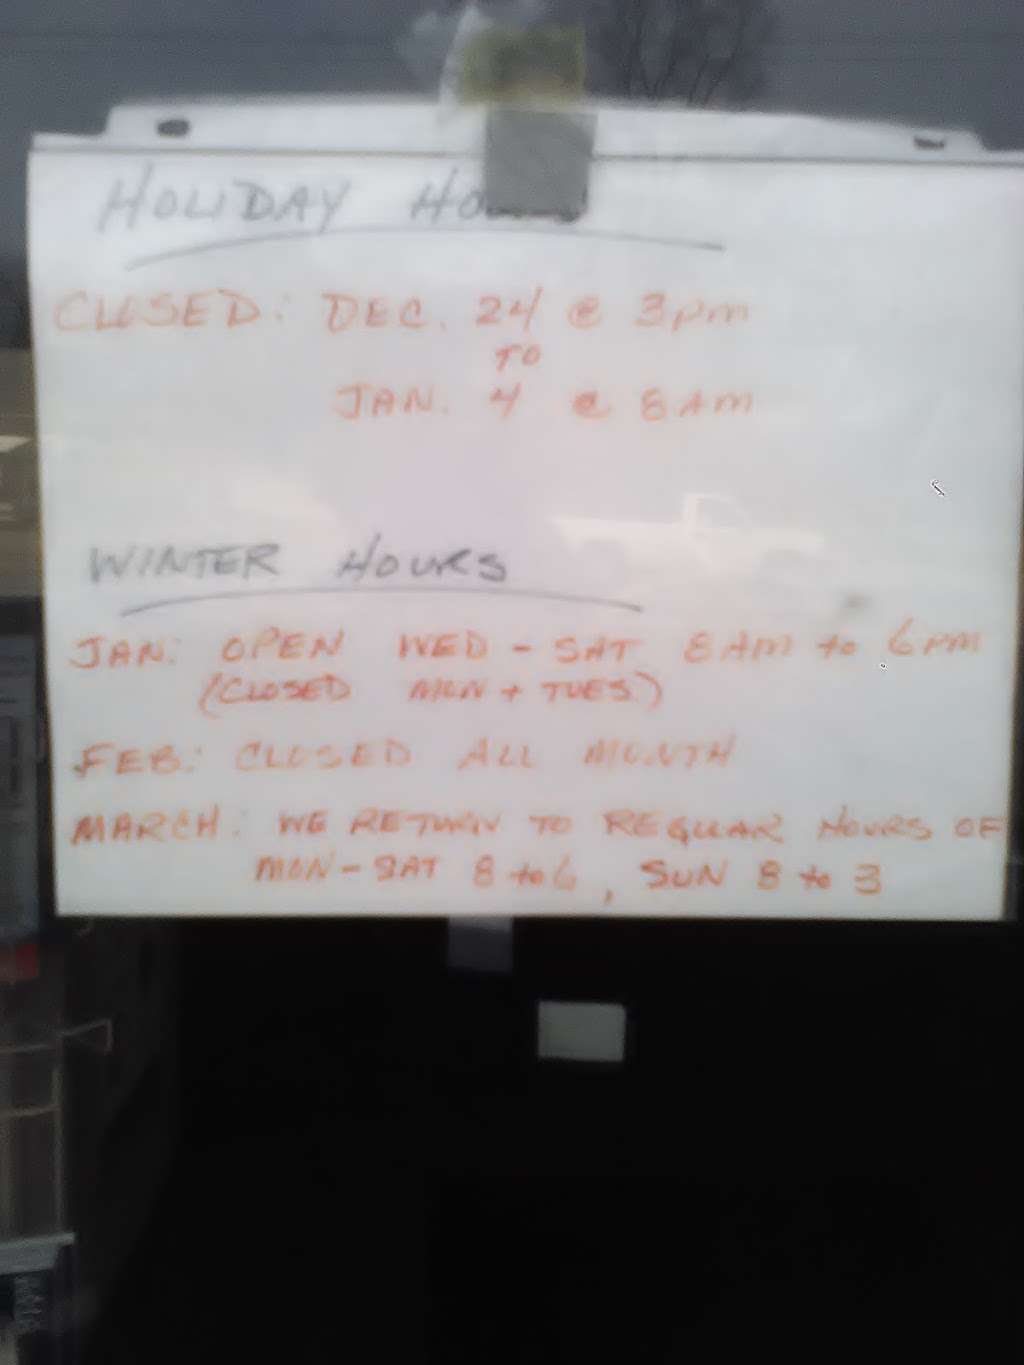 HOLIDAY
CLOSED: DEC. 24 @ 3pm
TO
JAN. 4 @ 8AM
WINTER HOURS
JAN: OPEN WED - SAT 8AM to 6PM
(CLOSED MON + TUES)
FEB: CLOSED ALL MONTH
MARCH: WE RETURN TO REGULAR HOURS OF
MON-SAT 8 to 6, SUN 8 to 3